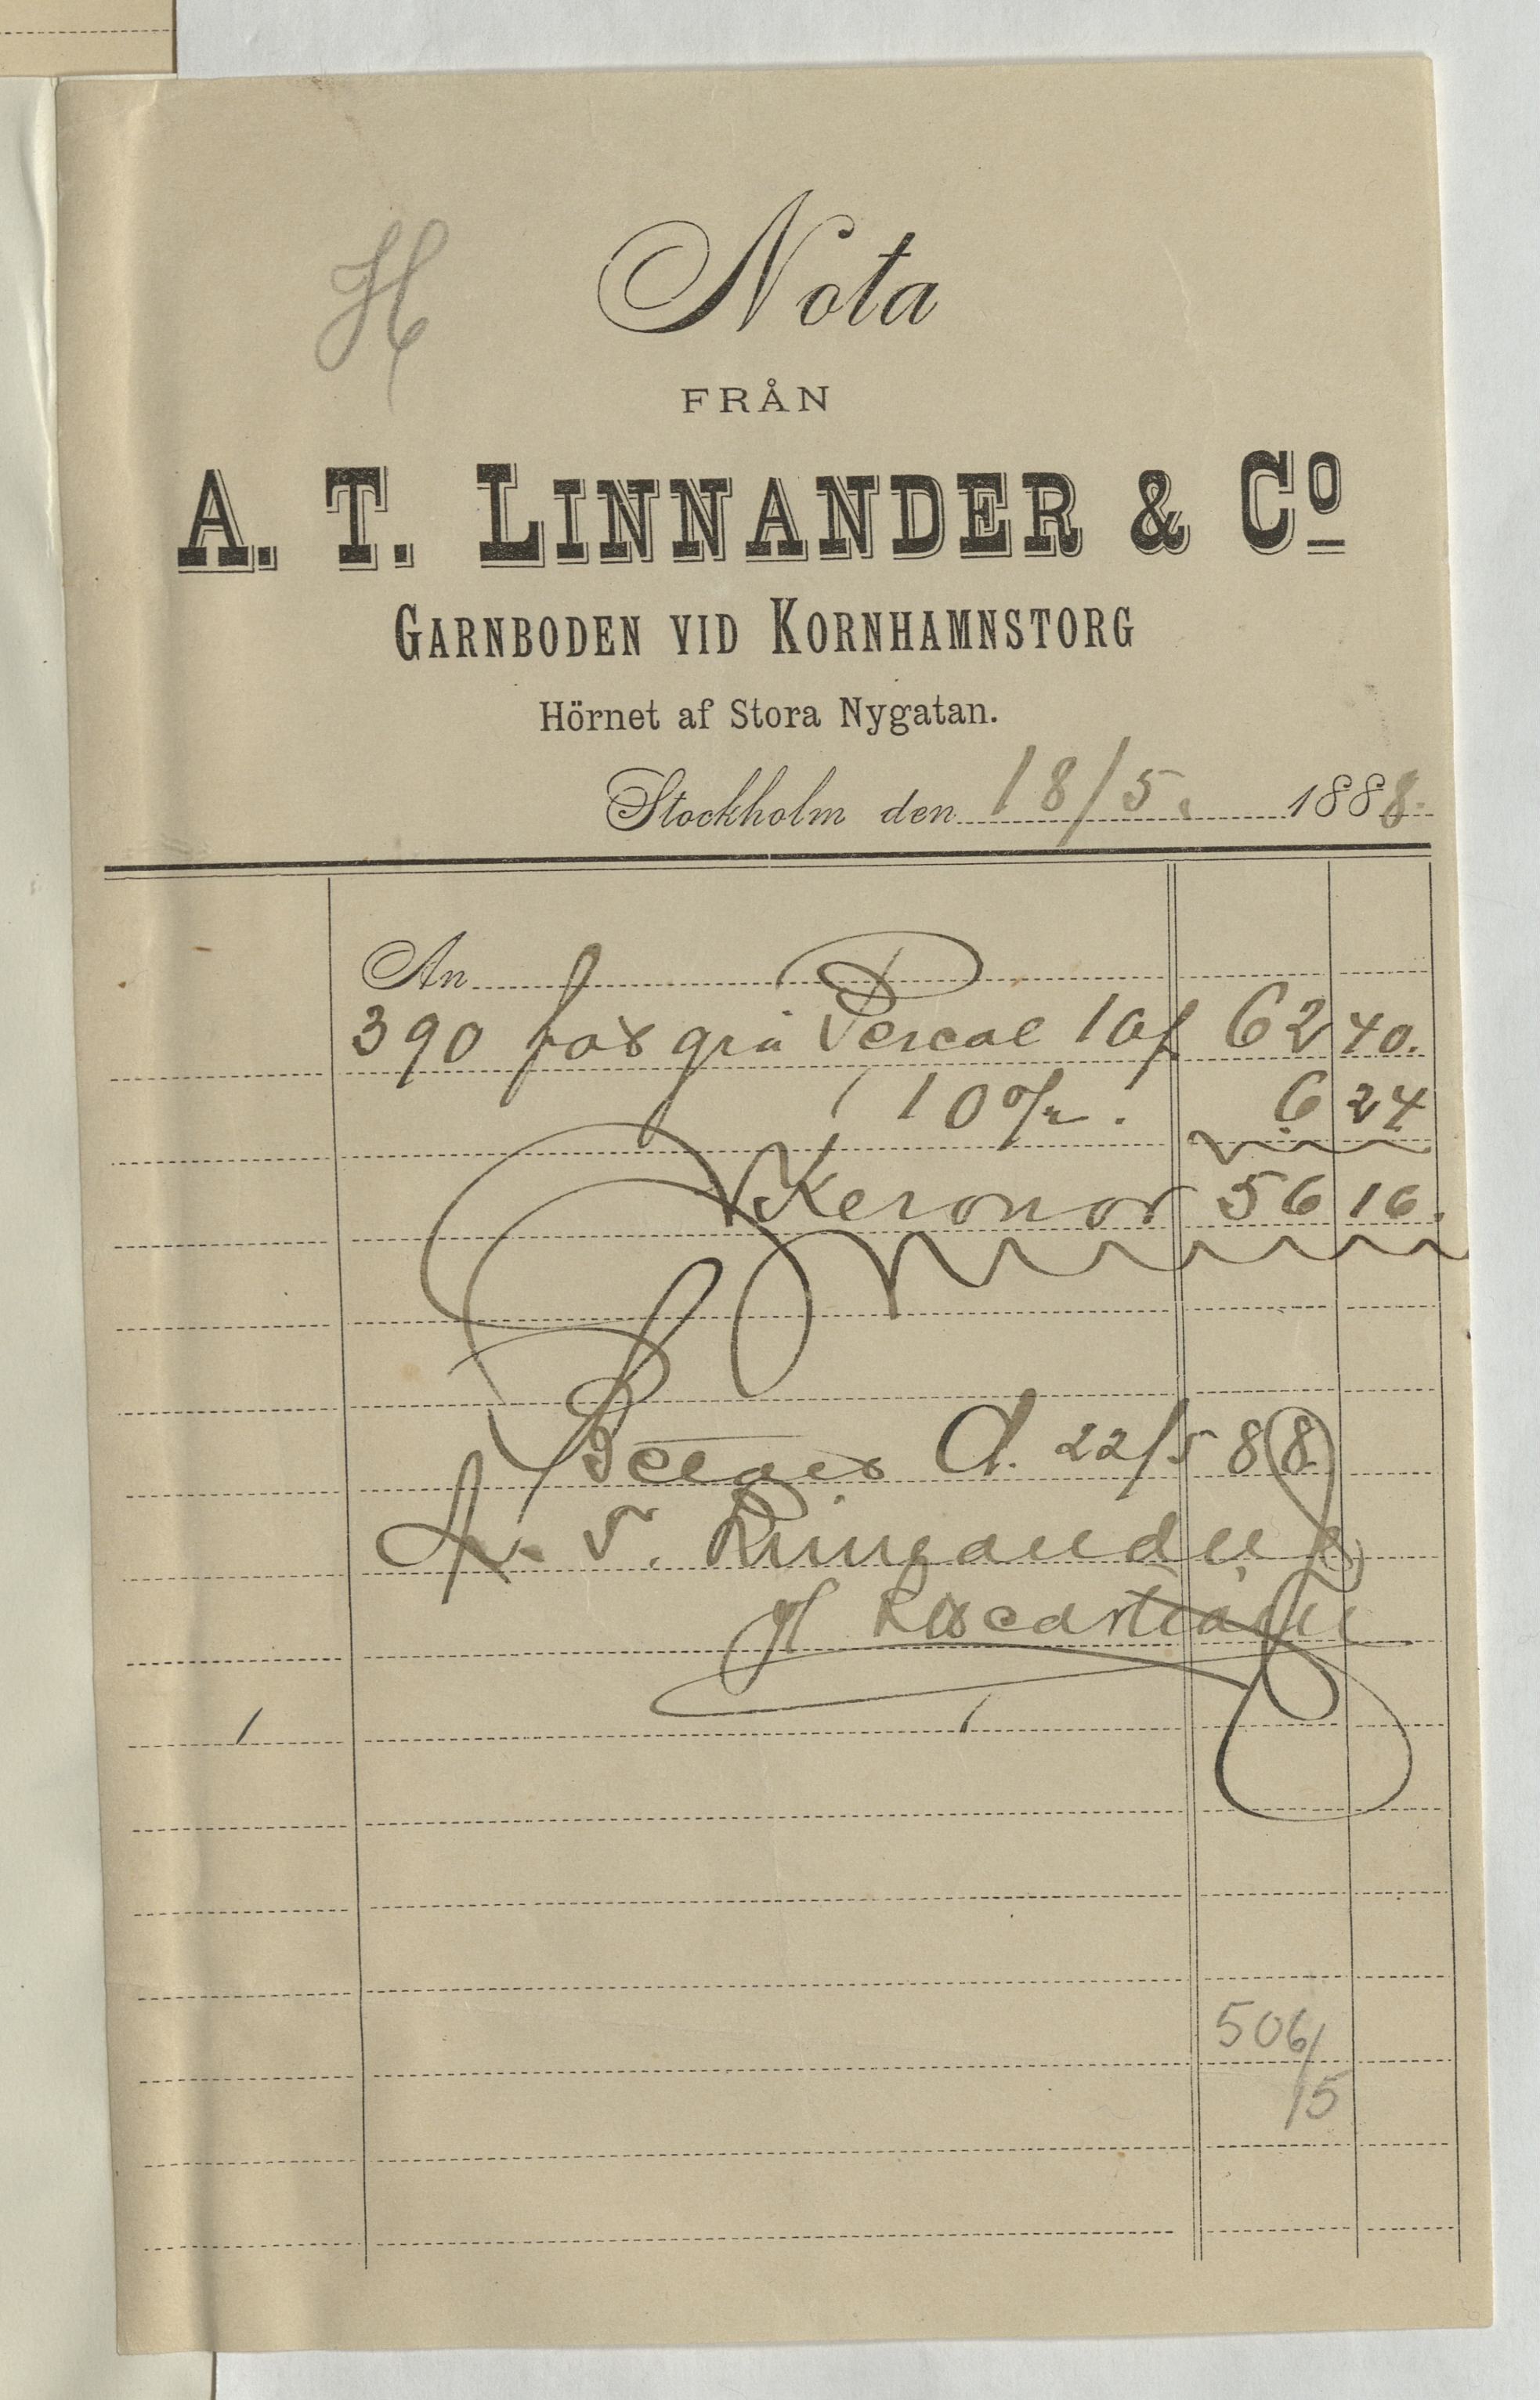 H
Nota
FRÅN
A. T. LINNANDER & Co
GARNBODEN VID KORNHAMNSTORG
Hörnet af Stora Nygatan.
Stockholm den 18/5. 1888.
An
390 fot grå Percal 16 f 62 40.
10%. 6 24
Kronor 56 16.
d. 22/5 88
A. T. Linnander
506/15